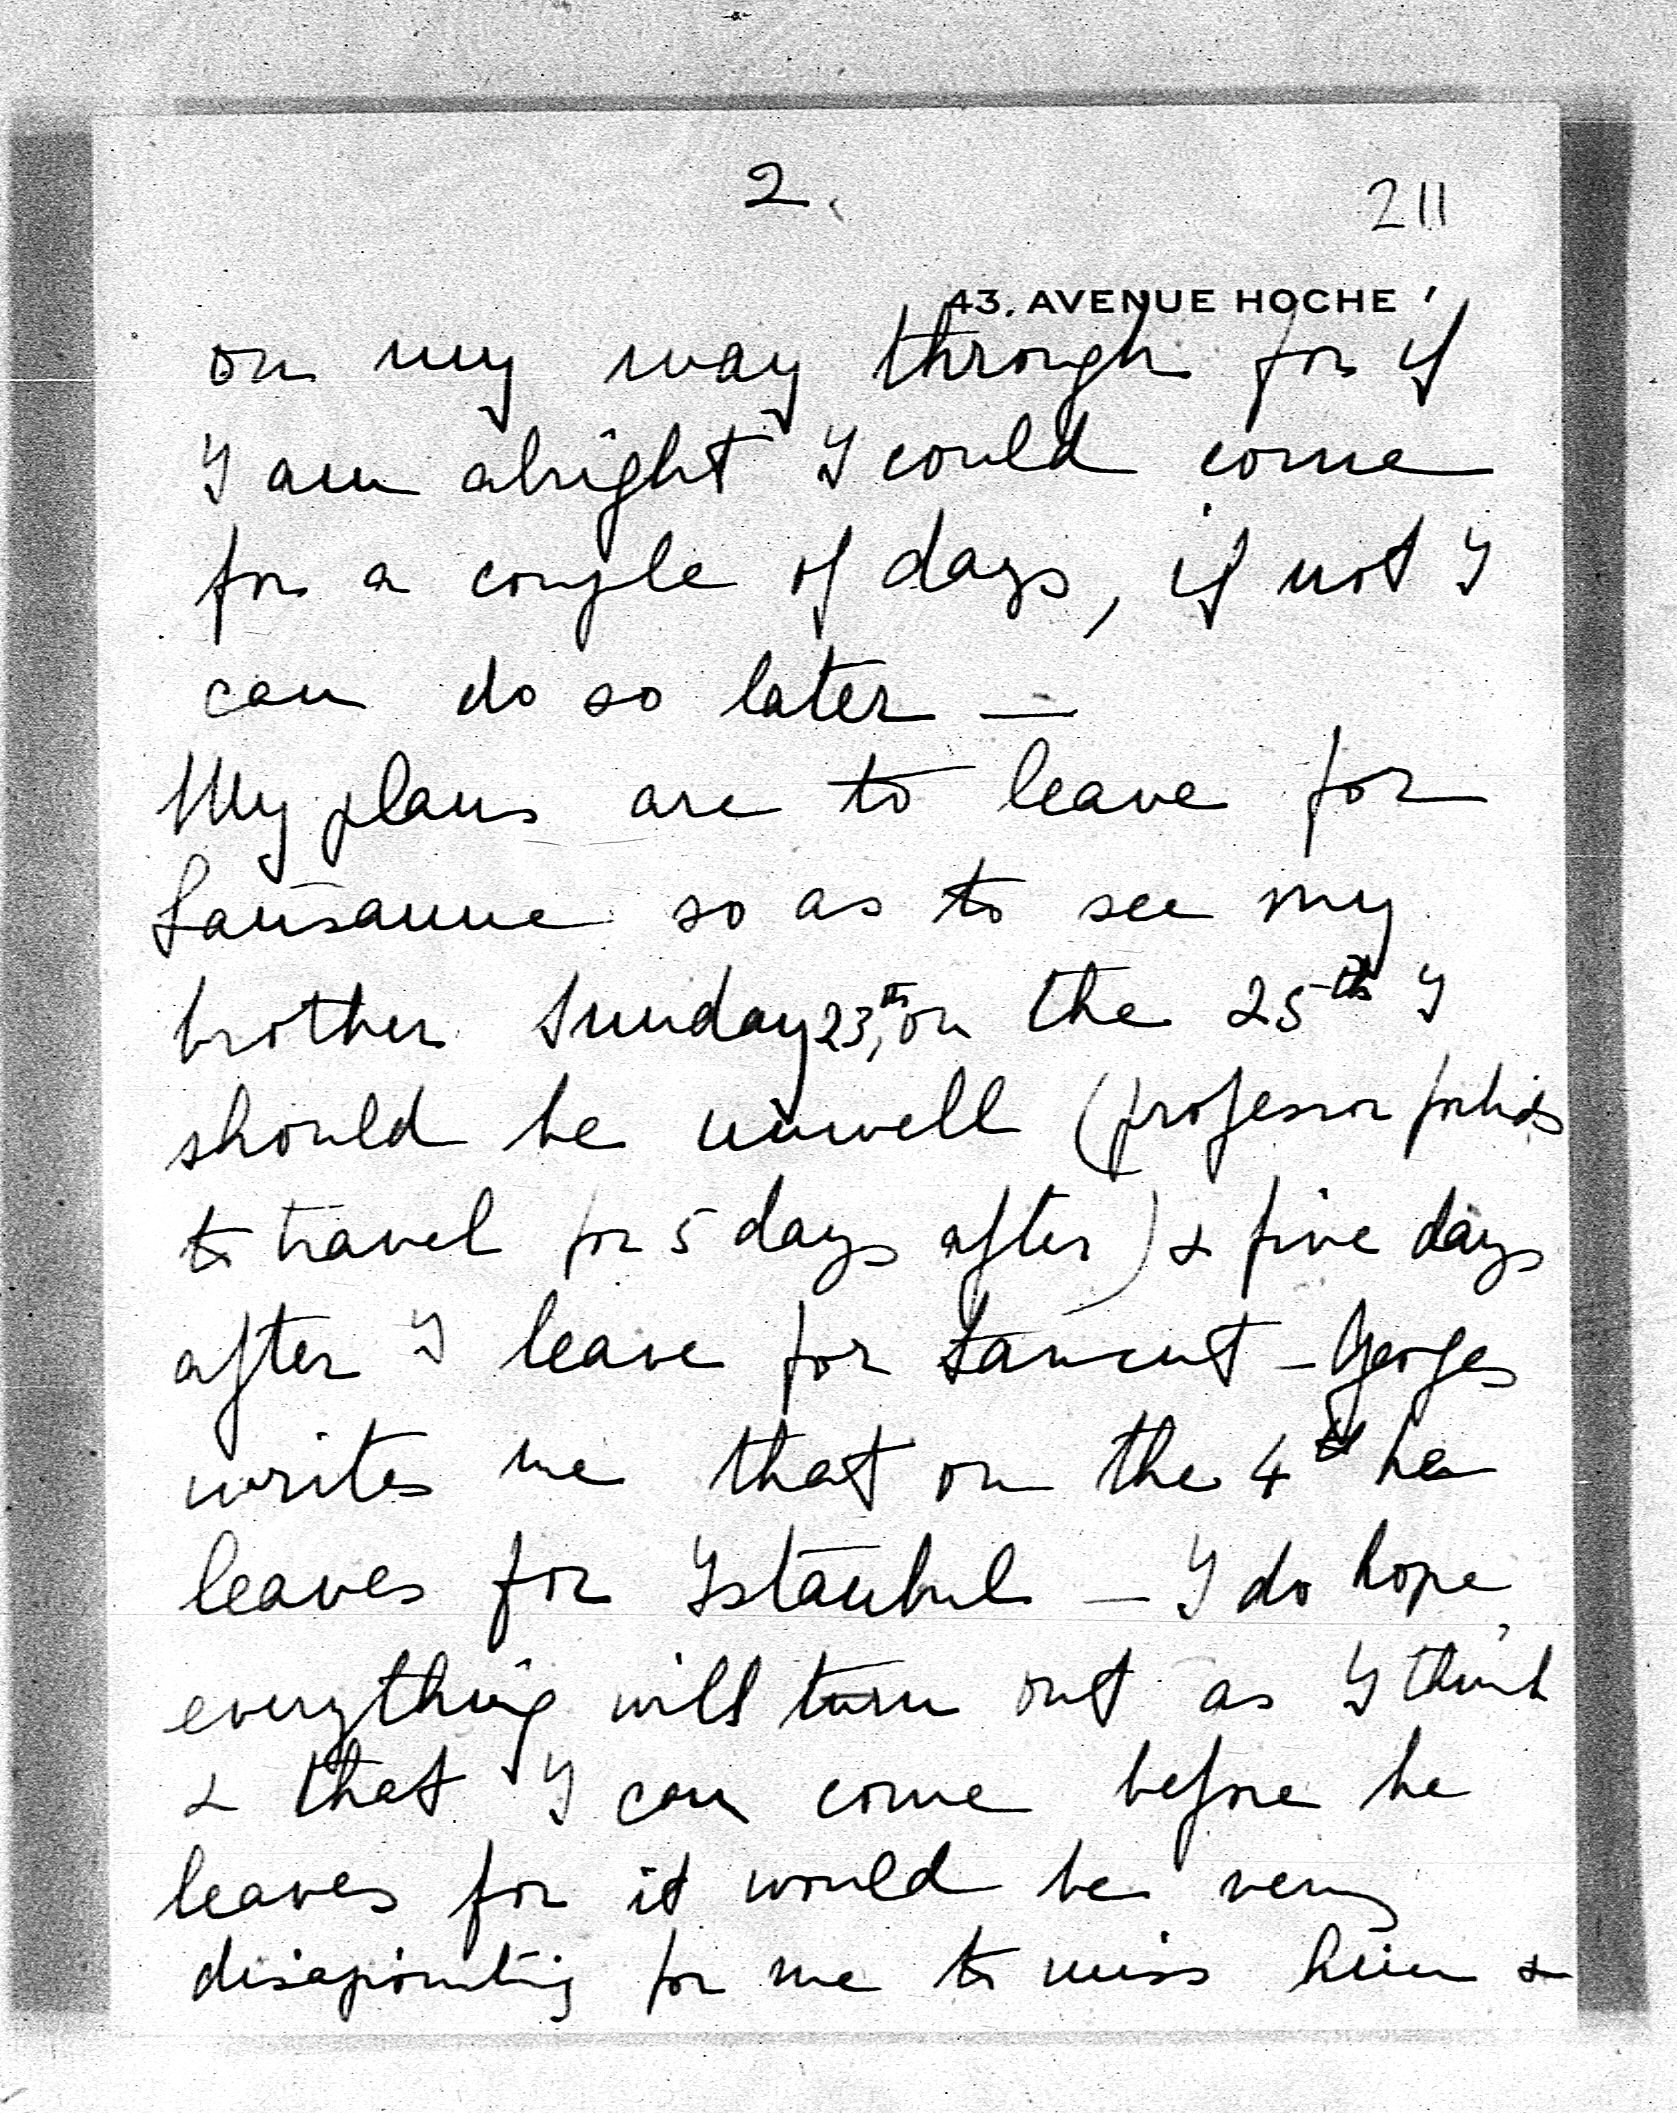 2.
211
43, AVENUE HOCHE
on my way through for if
I am alright I could come
for a couple of days, if not I
can do so later —
My plans are to leave for
Lausanne so as to see my
brother Sunday 23th, on the 25th I
should be unwell (professor forbids
to travel for 5 days after) & five days
after I leave for Lancut – Georges
writes me that on the 4th he
leaves for Istanbul – I do hope
everything will turn out as I think
& that I can come before he
leaves for it would be very
disapointing for me to miss him &